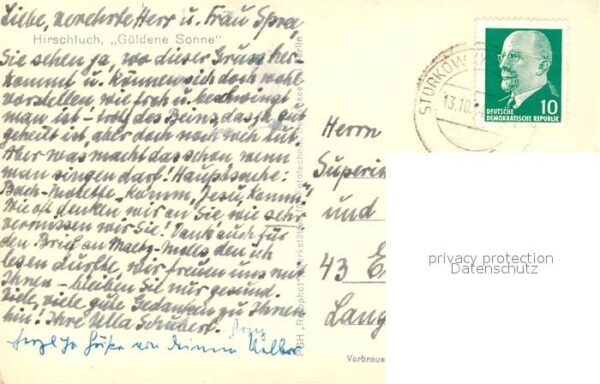 Liebe, verehrte Herr u. Frau Spree,
Hirschluch, „Güldene Sonne"
Sie sehen ja, wo dieser Gruss her
kommt u. können sich doch wohl
vorstellen, wie froh u. beschwingt
man ist - trotz des Beins, das gut
geheilt ist, aber doch noch weh tut.
Aber was macht das schon, wenn
man singen darf! Hauptsache:
Bach-Motette „Komm, Jesu, Komm"
Wie oft denken wir an Sie, wie sehr
vermissen wir Sie! Dank auch für
den Brief an den ich
lesen durfte, wir freuen uns mit
Ihnen - bleiben Sie nur gesund.
Viele, viele gute Gedanken zu Ihnen
hin! Ihre Ulla Schubert.
herzl. Grüße von
STORKOW
13.10.
DEUTSCHE
DEMOKRATISCHE REPUBLIK
10
Herrn
Superin
und
43
Lang
privacy protection
Datenschutz
Verbrau